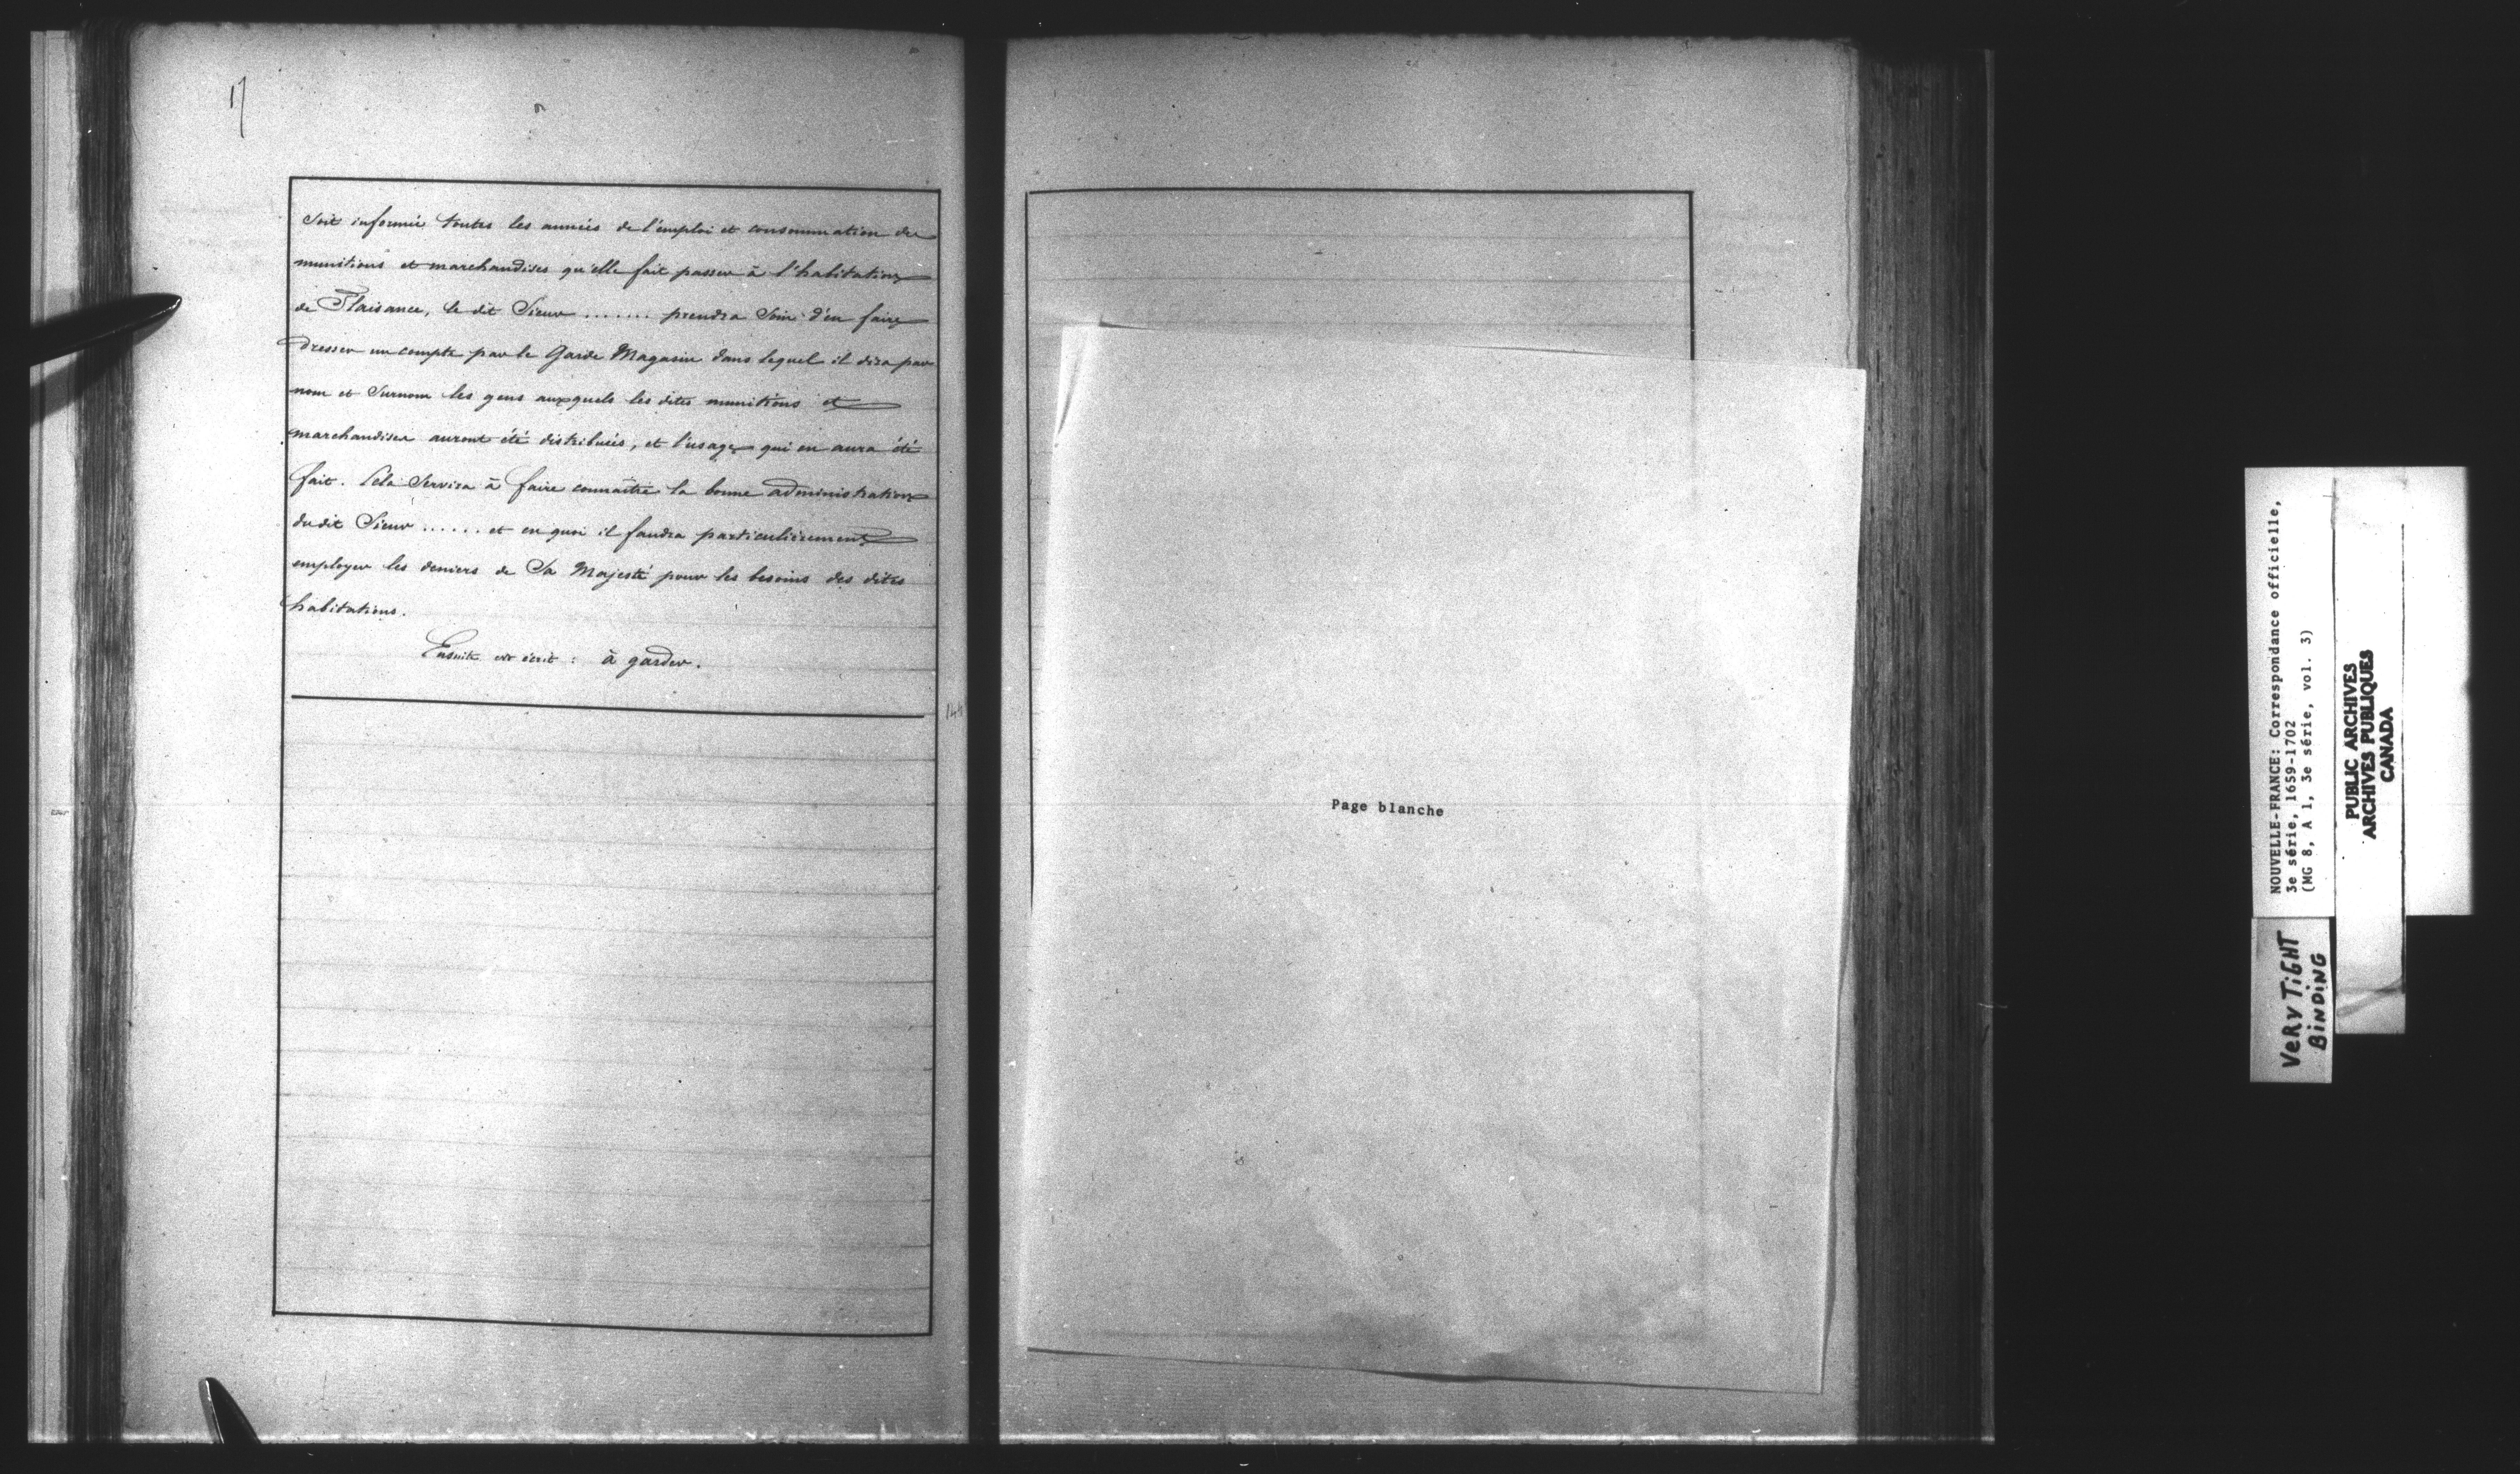 17
Soit informée toutes les années de l'emploi et consommation des
munitions et marchandises qu'elle fait passer à l'habitation
de Plaisance, le dit Sieur ....... prendra Soin d'en faire
dresser un compte par le Garde Magasin dans lequel il dira par
nom et Surnom les gens auxquels les dites munitions et
marchandises auront été distribuées, et l'usage qui en aura été
fait. Cela Servira à faire connaître la bonne administration
du dit Sieur ...... et en quoi il faudra particulièrement
employer les deniers de Sa Majesté pour les besoins des dites
habitations.
Ensuite est écrit : à garder.
Page blanche
NOUVELLE-FRANCE: Correspondance officielle,
3e série, 1659-1702
(MG 8, A 1, 3e série, vol. 3)
PUBLIC ARCHIVES
ARCHIVES PUBLIQUES
CANADA
VERY TIGHT
BINDING